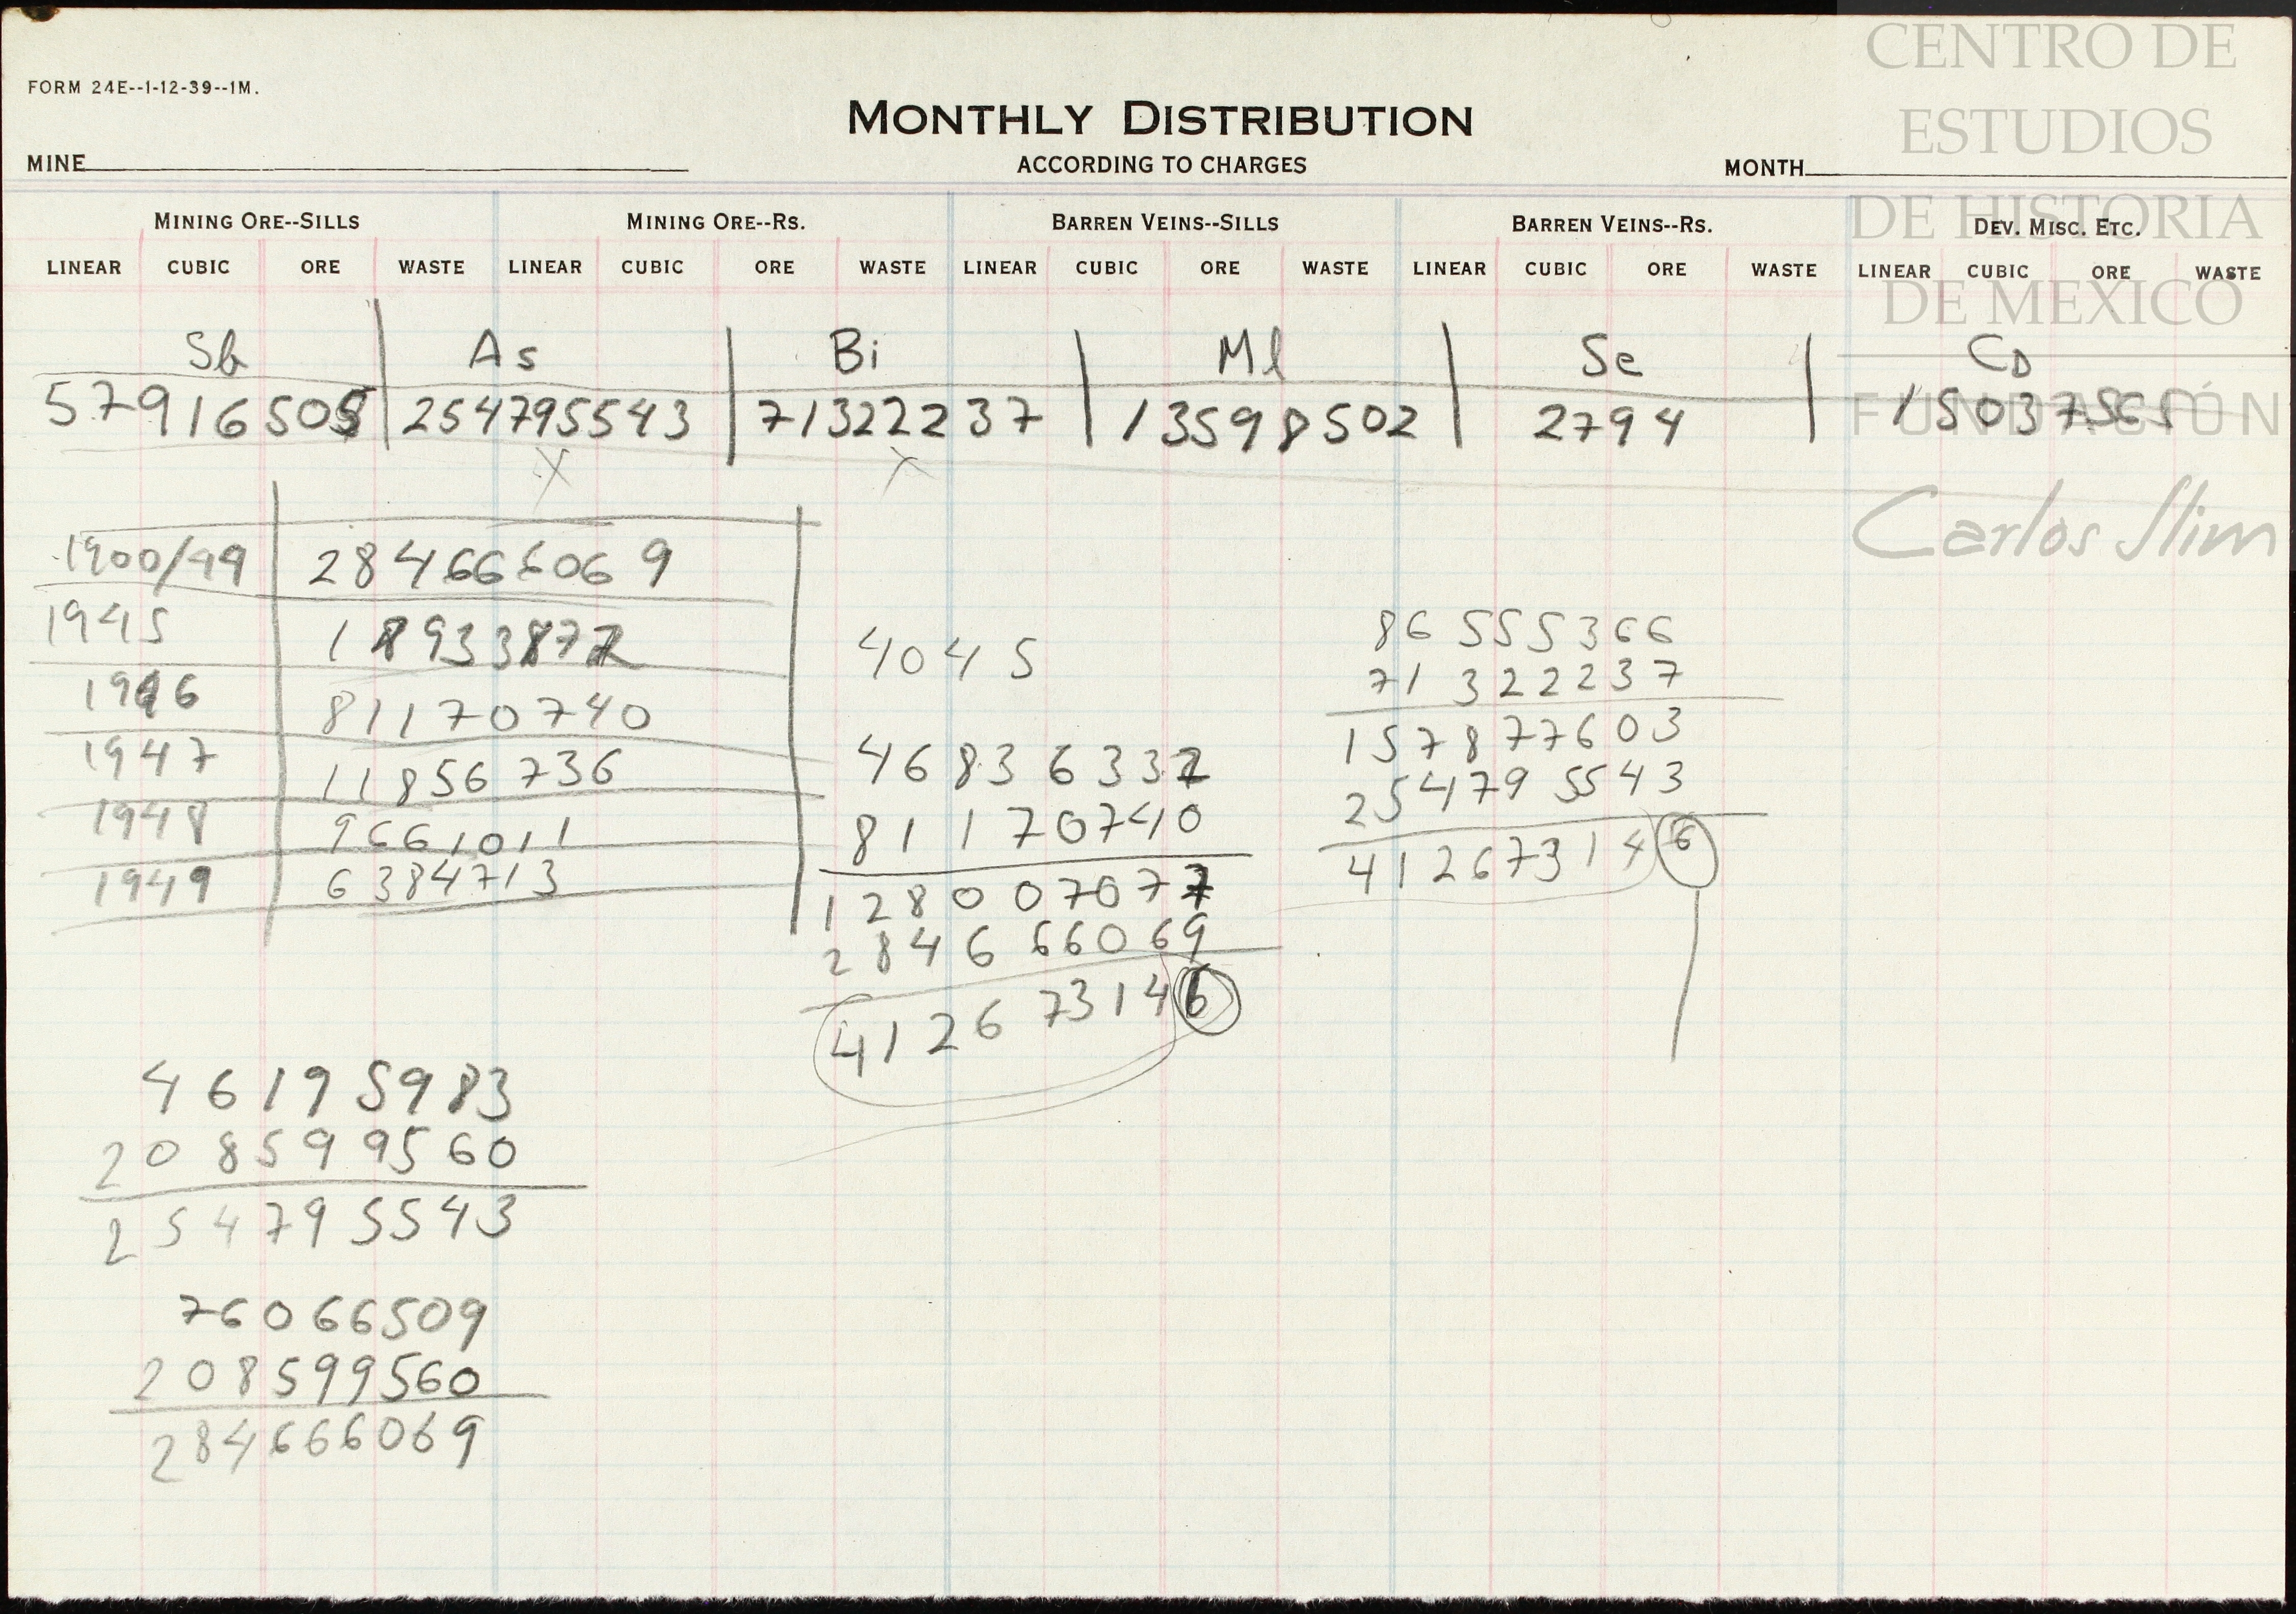 CENTRO DE
ESTUDIOS
DE HISTORIA
DE MEXICO
FUNDACIÓN
Carlos Slim
FORM 24E--1-12-39--1M.
MONTHLY DISTRIBUTION
MINE ACCORDING TO CHARGES MONTH
MINING ORE--SILLS MINING ORE--RS. BARREN VEINS--SILLS BARREN VEINS--RS. DEV. MISC. ETC.
LINEAR CUBIC ORE WASTE LINEAR CUBIC ORE WASTE LINEAR CUBIC ORE WASTE LINEAR CUBIC ORE WASTE LINEAR CUBIC ORE WASTE
Sb As Bi Ml Se CD
57916505 254795543 71322237 13598502 2794 15037565
X X
1900/44 284666069
1945 18933877
1946 81170740
1947 11856736
1948 9661011
1949 6384713
4045
46836337
81170740
128007077
284666069
412673146
86555366
71322237
157877603
254795543
412673146
46195983
208599560
254795543
76066509
208599560
284666069